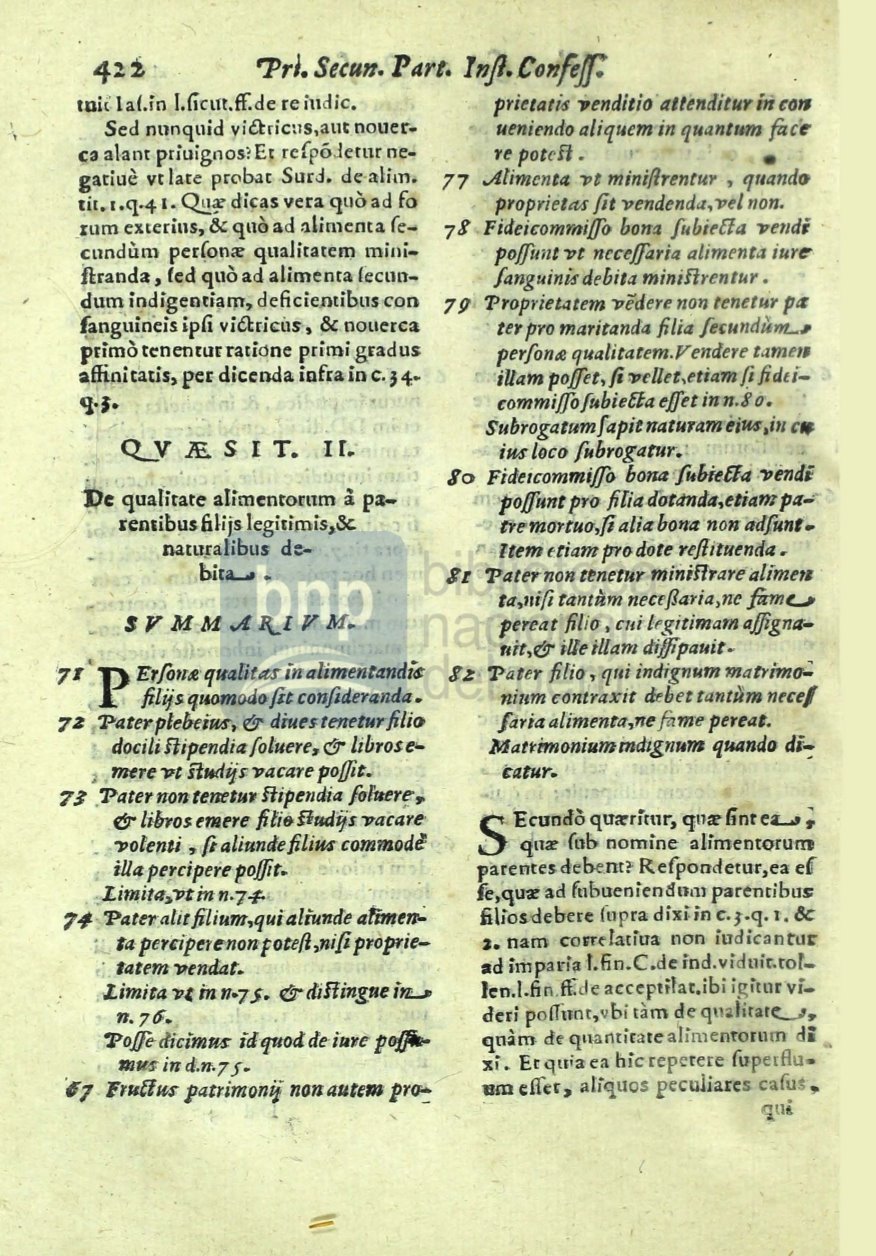 422 Pri. Secun. Part. Inst. Confess.
tuit Ias.in l.sicut.ff.de re iudic.
Sed nunquid victricus,aut nouer-
ca alant priuignos? Et respõdetur ne-
gatiuè vt late probat Surd. de alim.
tit.1.q.41. Quæ dicas vera quò ad fo
rum exterius, & quò ad alimenta se-
cundùm personæ qualitatem mini-
stranda, sed quò ad alimenta secun-
dum indigentiam, deficientibus con
sanguineis ipsi victricus, & nouerca
primò tenentur ratione primi gradus
affinitatis, per dicenda infra in c.34.
q.3.
QVÆSIT. II.
De qualitate alimentorum à pa-
rentibus filijs legitimis,&
naturalibus de-
bita.
SVMMARIVM.
71 PErsonæ qualitas in alimentandis
filijs quomodo sit consideranda.
72 Pater plebeius, & diues tenetur filio
docili stipendia soluere, & libros e-
mere vt studijs vacare possit.
73 Pater non tenetur stipendia soluere,
& libros emere filio studijs vacare
volenti, si aliunde filius commodè
illa percipere possit.
Limita,vt in n.74.
74 Pater alit filium,qui aliunde alimen-
ta percipere non potest,nisi proprie-
tatem vendat.
Limita vt in n.75. & distingue in
n.76.
Posse dicimus id quod de iure possu-
mus in d.n.75.
67 Fructus patrimonij non autem pro-
prietatis venditio attenditur in con
ueniendo aliquem in quantum face
re potest.
77 Alimenta vt ministrentur, quando
proprietas sit vendenda,vel non.
78 Fideicommisso bona subiecta vendi
possunt vt necessaria alimenta iure
sanguinis debita ministrentur.
79 Proprietatem vẽdere non tenetur pa
ter pro maritanda filia secundùm
personæ qualitatem.Vendere tamen
illam posset, si vellet,etiam si fidei-
commisso subiecta esset in n.80.
Subrogatum sapit naturam eius,in cu
ius loco subrogatur.
80 Fideicommisso bona subiecta vendi
possunt pro filia dotanda,etiam pa-
tre mortuo,si alia bona non adsunt.
Item etiam pro dote restituenda.
81 Pater non tenetur ministrare alimen
ta,nisi tantùm necessaria,ne fame
pereat filio, cui legitimam assigna-
uit,& ille illam dissipauit.
82 Pater filio, qui indignum matrimo-
nium contraxit debet tantùm necess
saria alimenta,ne fame pereat.
Matrimonium indignum quando di-
catur.
SEcundò quæritur, quæ sint ea,
quæ sub nomine alimentorum
parentes debent? Respondetur,ea es
se,quæ ad subueniendum parentibus
filios debere supra dixi in c.3.q.1. &
2. nam correlatiua non iudicantur
ad imparia l.fin.C.de ind.viduit.tol-
len.l.fin.ff.de acceptilat.ibi igitur vi-
deri possunt,vbi tàm de qualitate,
quàm de quantitate alimentorum di
xi. Et quia ea hic repetere superflu-
um esset, aliquos peculiares casus,
qui
bnp